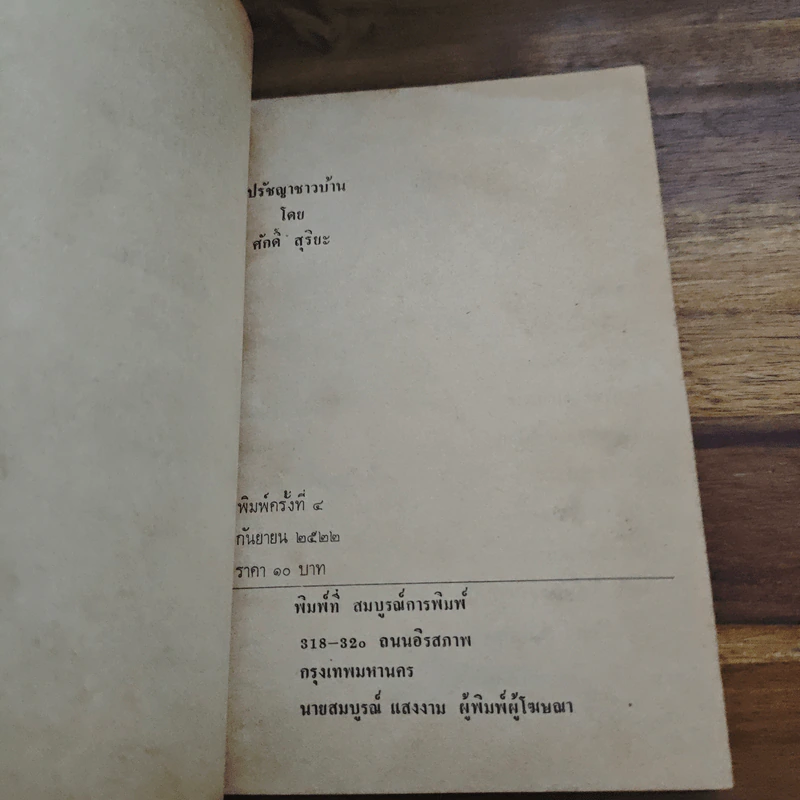 ปรัชญาชาวบ้าน
โดย
ศักดิ์ สุริยะ
พิมพ์ครั้งที่ ๔
กันยายน ๒๕๒๒
ราคา ๑๐ บาท
พิมพ์ที่ สมบูรณ์การพิมพ์
318–32๐ ถนนอิรสภาพ
กรุงเทพมหานคร
นายสมบูรณ์ แสงงาม ผู้พิมพ์ผู้โฆษณา